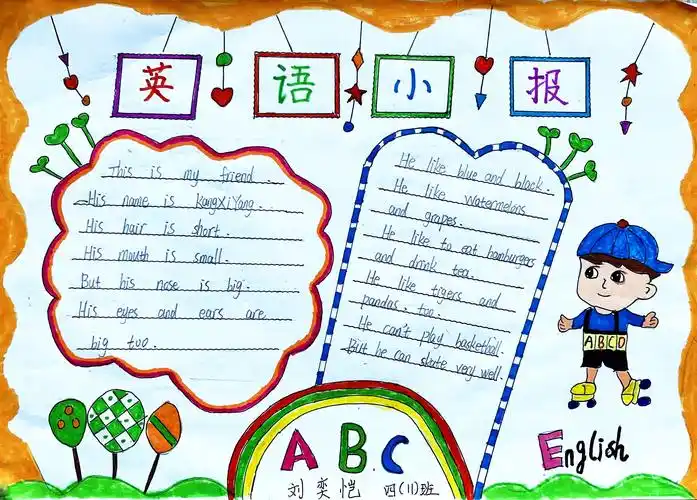 英语小报
This is my friend
His name is KangXiYang.
His hair is short.
His mouth is small.
But his nose is big.
His eyes and ears are
big too.
He like blue and black.
He like watermelons
and grapes.
He like to eat hamburgers
and drink tea.
He like tigers and
pandas. too.
He can't play basketball.
But he can skate very well.
ABCD
ABC
English
刘奕恺 四(11)班